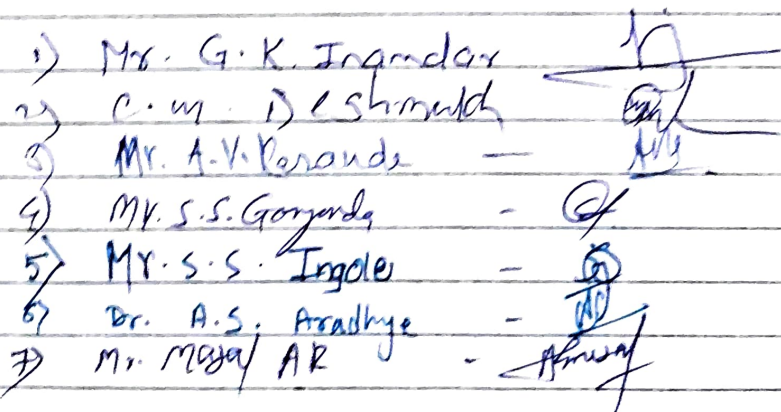 1) Mr. G. K. Inamdar
2) C. M. Deshmukh
3) Mr. A.V. Perande -
4) Mr. S.S. Gonjonda -
5) Mr. S.S. Ingole -
6) Dr. A.S. Aradhye -
7) Mr. Mayal AR -